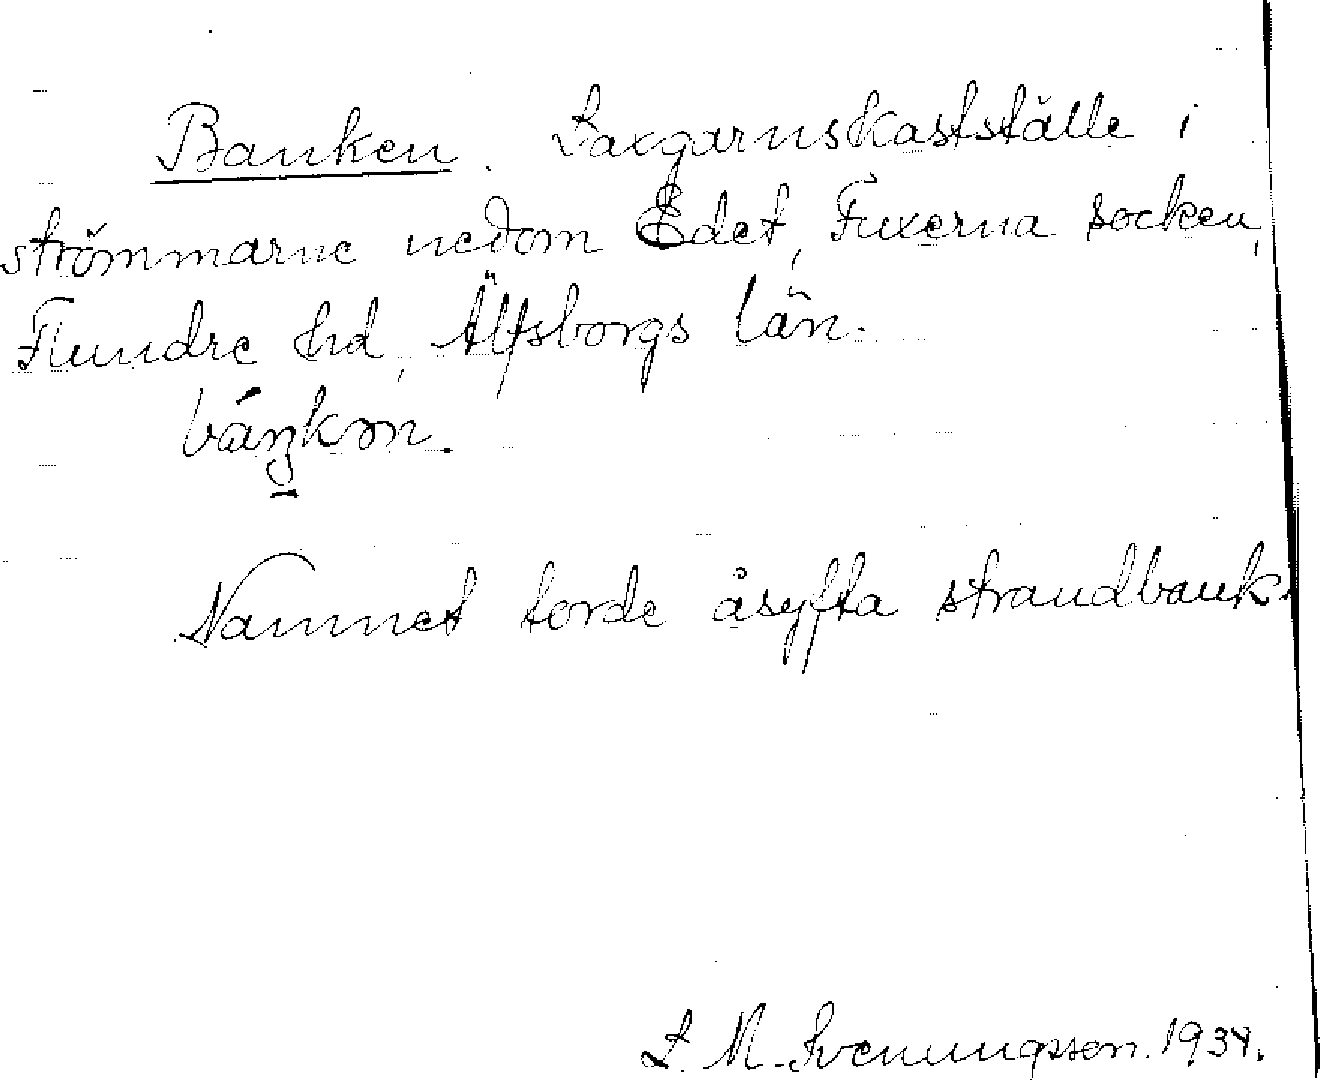 Banken. Laxgarnskastställe i
strömmarne nedom Edet, Fuxerna socken,
Flundre hd, Älfsborgs län.
báŋkən.
Namnet torde åsyfta strandbank.
S. M. Svenungsson. 1934.